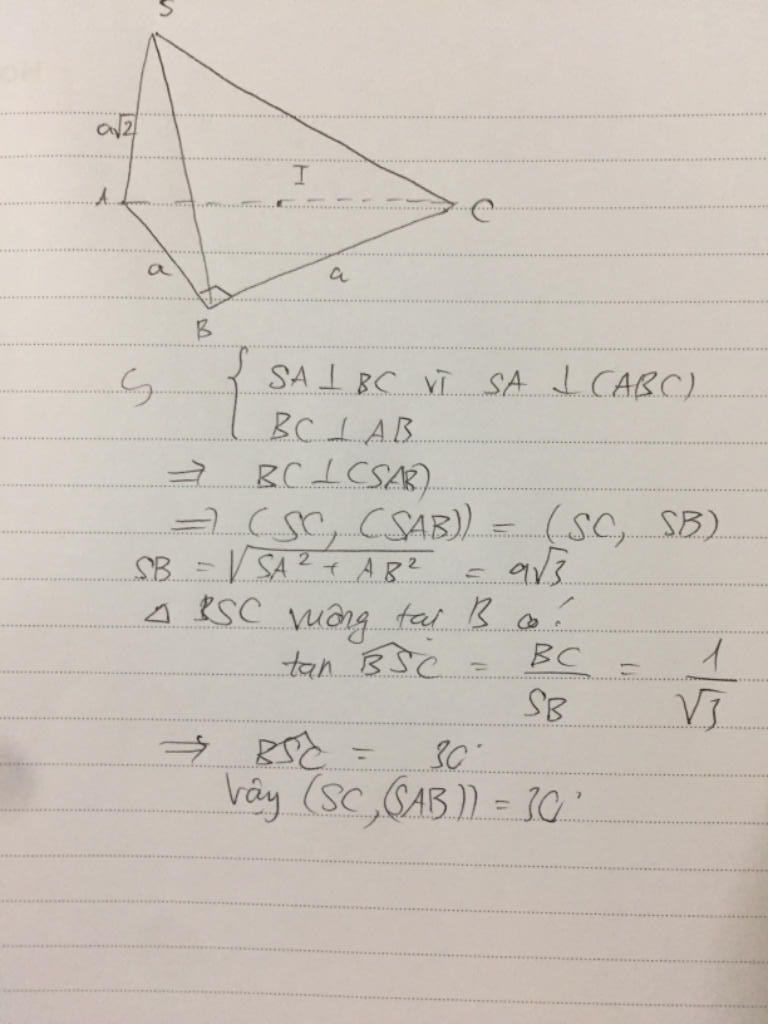 S
a√2
A
I
C
a
a
B
{ SA ⊥ BC vì SA ⊥ (ABC)
BC ⊥ AB
⇒ BC ⊥ (SAB)
⇒ (SC, (SAB)) = (SC, SB)
SB = √(SA² + AB²) = a√3
Δ BSC vuông tại B có:
tan BSC = BC/SB = 1/√3
⇒ BSC = 30°
Vậy (SC, (SAB)) = 30°